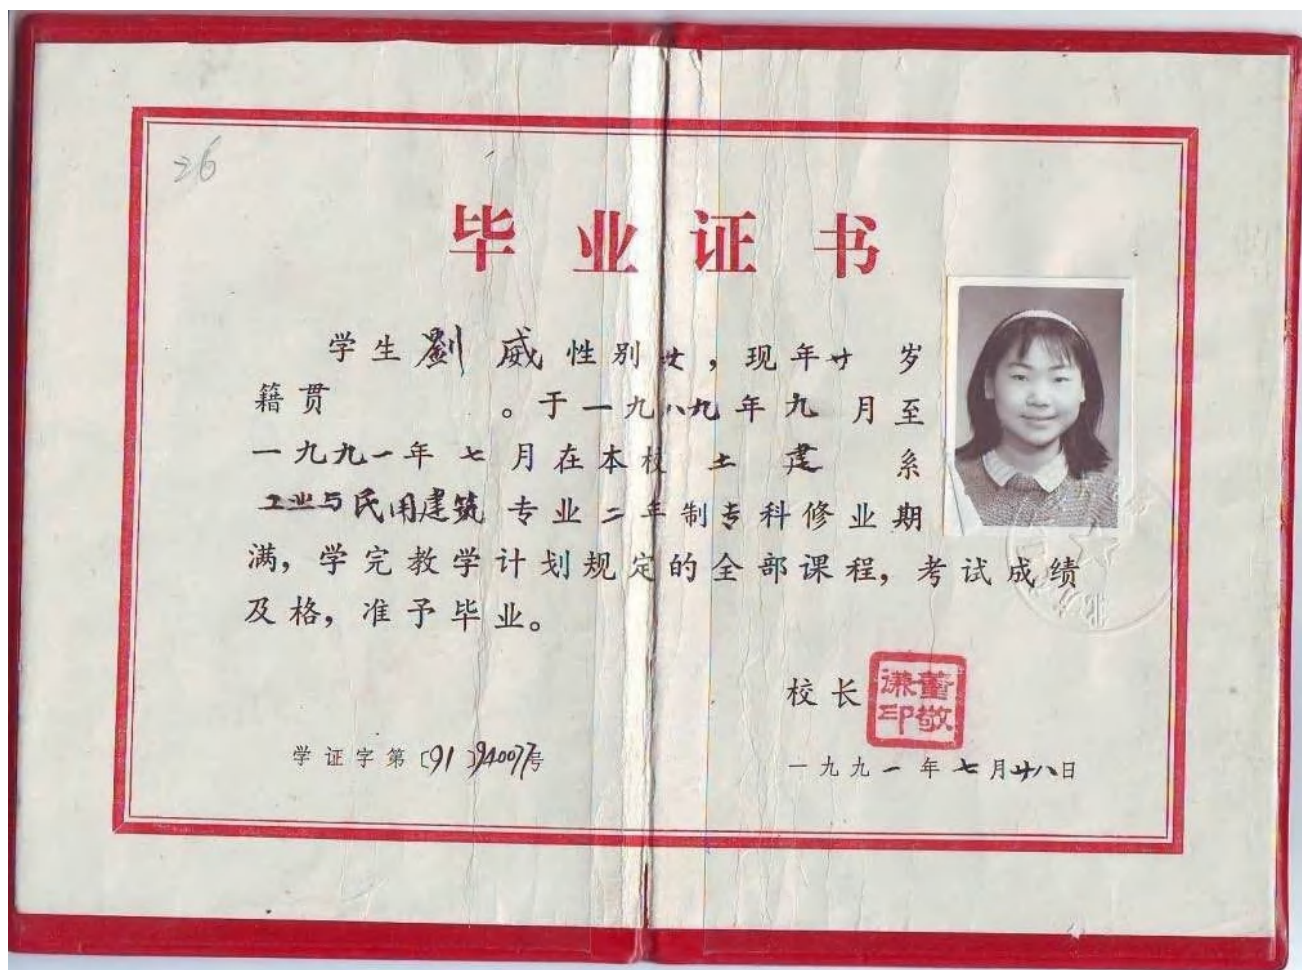 26
毕业证书
学生劉 威性别女，现年廿岁
籍贯 。于一九八九年九月至
一九九一年七月在本校土建系
工业与民用建筑专业二年制专科修业期
满，学完教学计划规定的全部课程，考试成绩
及格，准予毕业。
校长 董敬谦印
学证字第〔91〕94007号
一九九一年七月廿八日